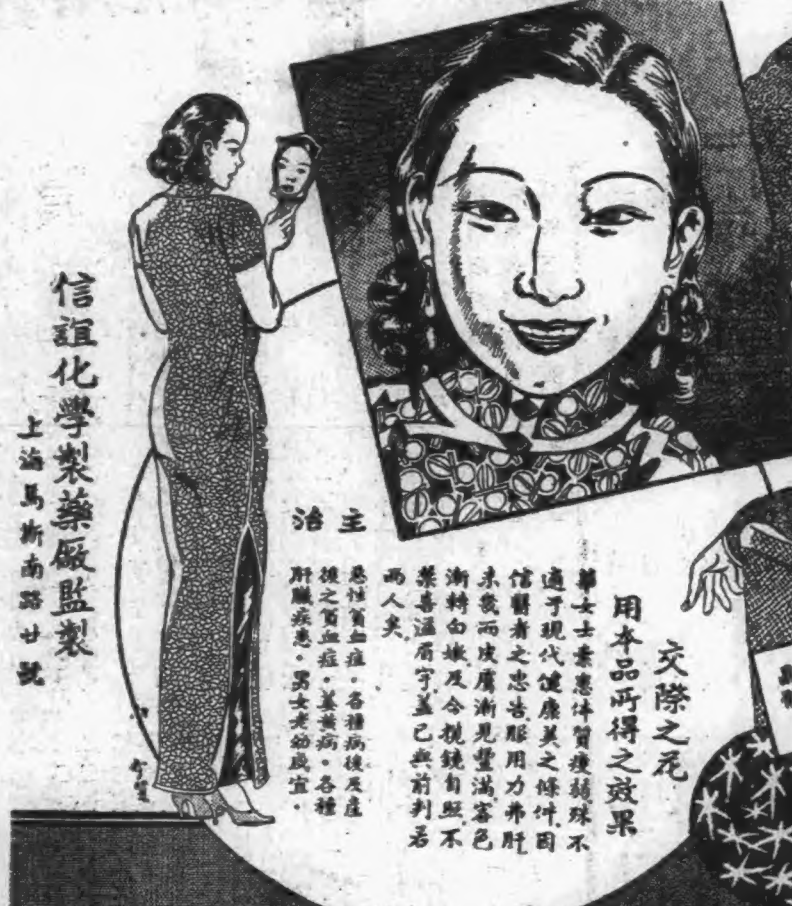 交際之花
用本品所得之效果
華女士素患体質瘦弱殊不
適于現代健康美之條件因
信醫者之忠告服用力弗肝
未幾而皮膚漸見豐滿容色
漸轉白嫩及今攬鏡自照不
禁喜溢眉宇蓋已與前判若
兩人矣
主治
惡性貧血症。各種病後及產
後之貧血症。萎黃病。各種
肝臟疾患。男女老幼咸宜。
信誼化學製藥廠監製
上海馬斯南路廿號